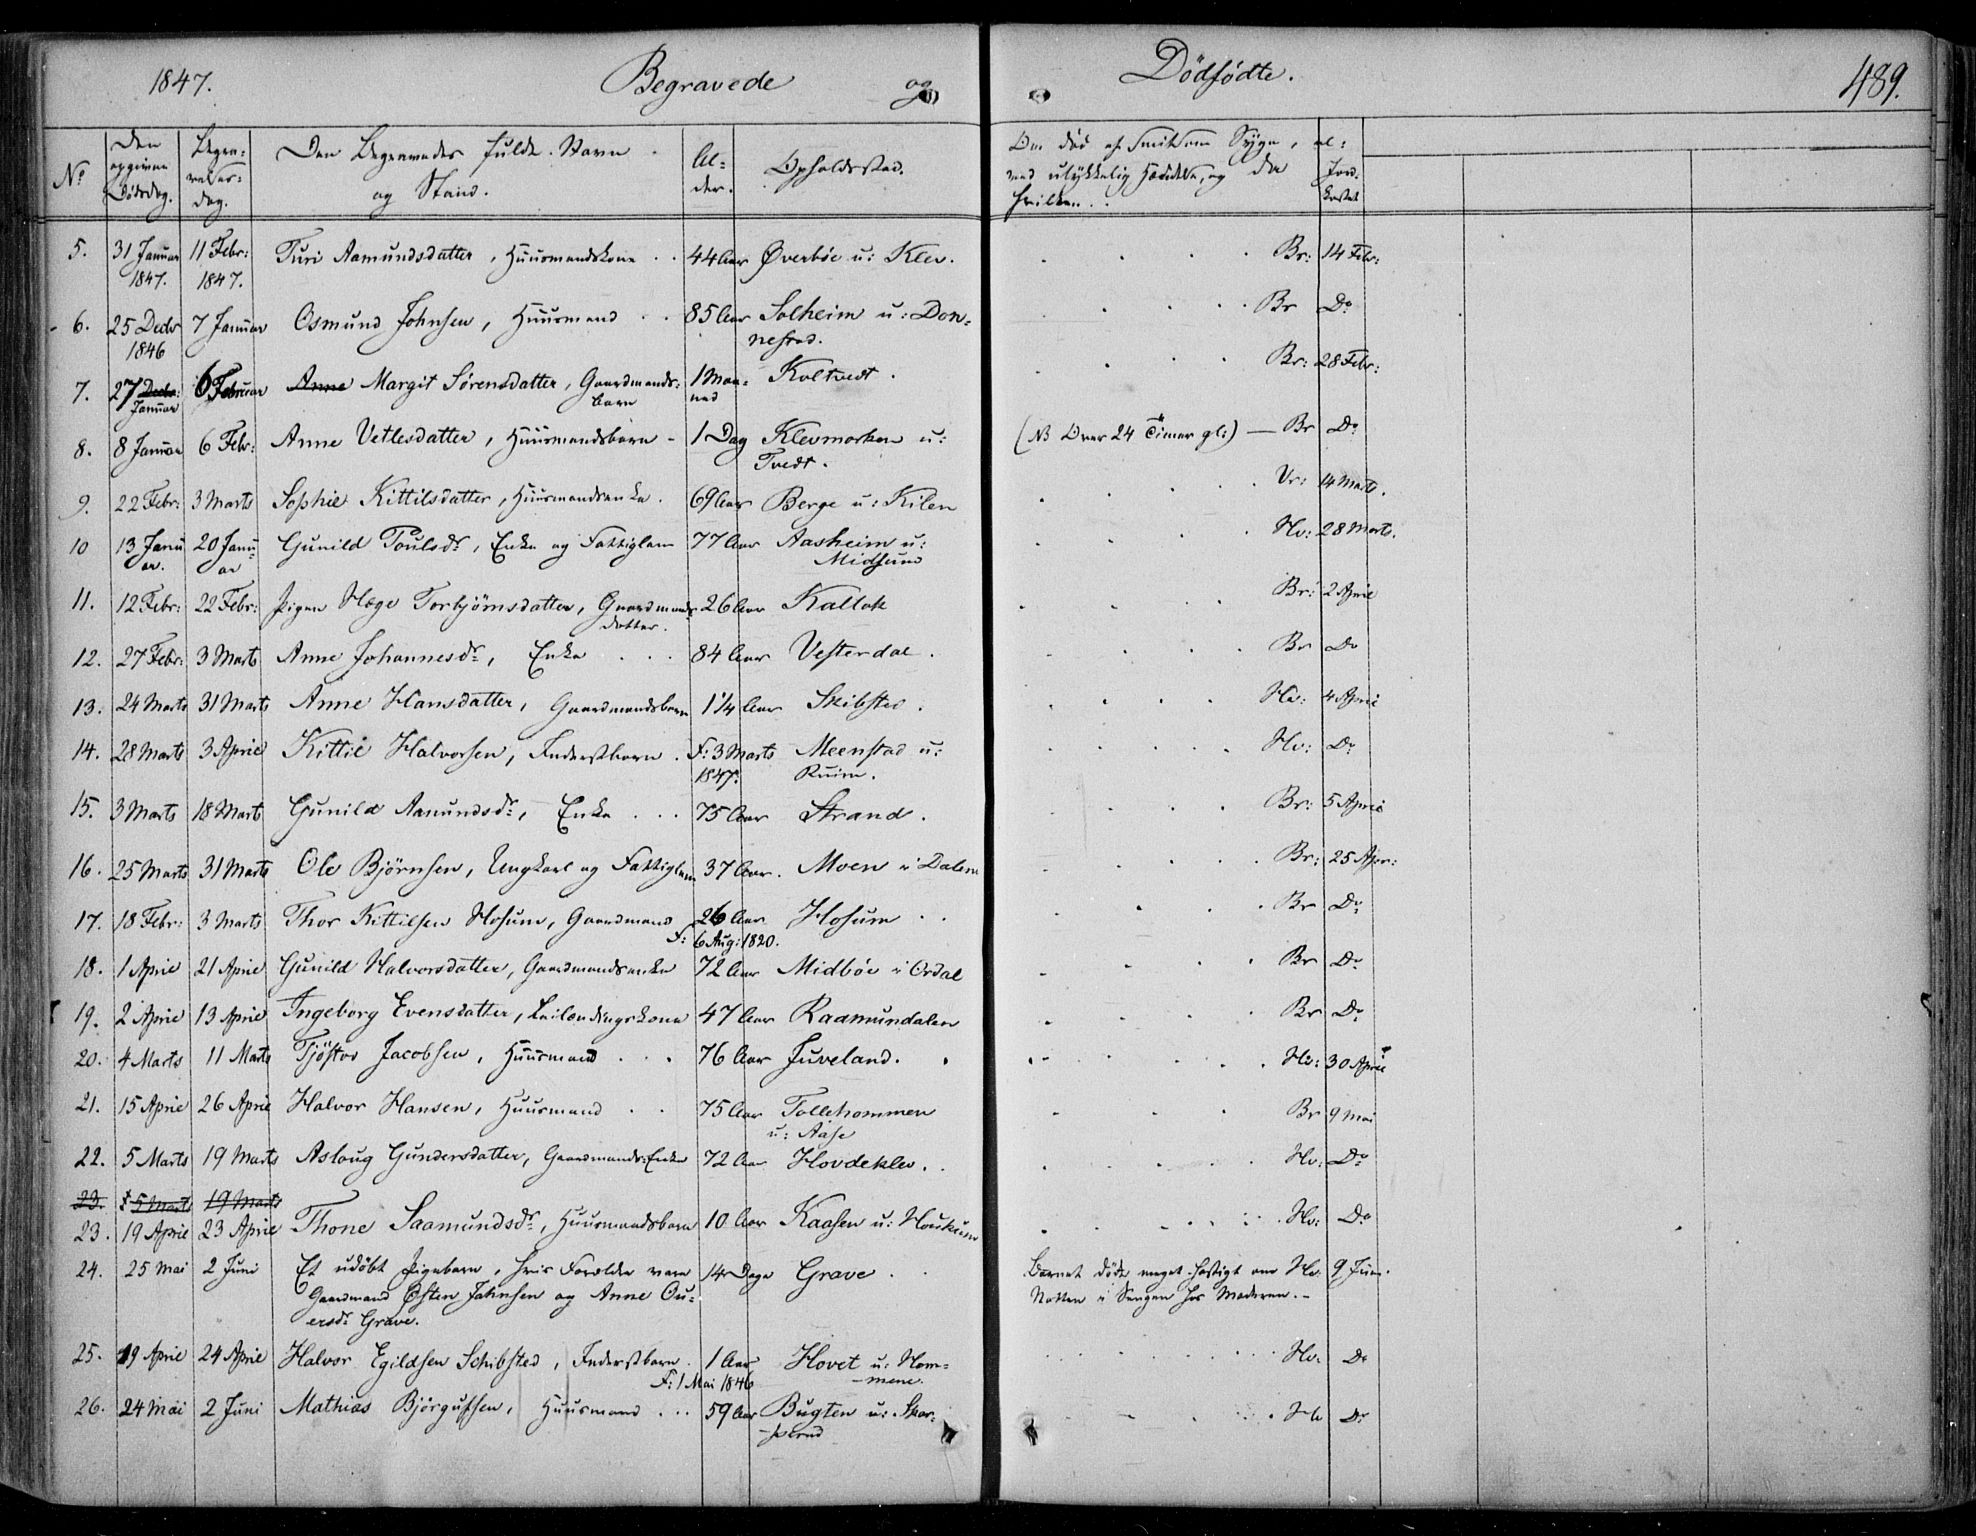 1847. Begravede og Dödfödte. 489.
No Den opgivne Dödsdag. Begra-velses-dag. Den Begravedes fulde Navn og Stand. Al-der. Opholdssted. Om död af smitsom Syge, el-ler ved ulykkelig Hændelse, og da hvilken. Jord-kastet
5. 31 Januar 11 Febr: Turi Aamundsdatter, Huusmandskone . . 44 Aar Øverböe u: Klev. Br: 14 Febr:
1847. 1847.
6. 25 Decbr 7 Januar Osmund Johnsen, Huusmand . . 85 Aar Solheim u: Don- Br Do
1846 nestad.
7. 27 Decbr: 6 Februar Anne Margit Sörensdatter, Gaardmands- 1 Maa- Koltvedt . Br: 28 Febr:
Januar barn ned
8. 8 Januar 6 Febr: Anne Vetlesdatter, Huusmandsbarn - 1 Dag Klevmorken u: (NB Over 24 Timer gl:) — Br Do
Tvedt.
9. 22 Febr: 3 Marts Sophie Kittilsdatter, Huusmandsenke . 69 Aar Berge u: Kilen Vr: 14 Marts.
10 13 Janu 20 Janu Gunild Poulsdr, Enke og Fattiglem 77 Aar Aasheim u: Hv: 28 Marts.
ar. ar Midsund
11. 12 Febr: 22 Febr: Pigen Hæge Torbjörnsdatter, Gaardmands 26 Aar Kallak Br: 2 April
datter.
12. 27 Febr: 3 Marts Anne Johannesdr, Enke . . . 84 Aar Vesterdal . Br Do
13. 24 Marts 31 Marts Anne Hansdatter, Gaardmandsbarn 1 1/4 Aar Skibsted . Hv: 4 April
14. 28 Marts 3 April Kittil Halvorsen, Inderstbarn . F: 3 Marts Meenstad u: Hv: Do
1847. Ruim.
15. 3 Marts 18 Marts Gunild Aamundsdr, Enke . . . 75 Aar Strand . Br: 5 April
16. 25 Marts 31 Marts Ole Björnsen, Ungkarl og Fattiglem 37 Aar. Moen i Dalene Br: 25 Apr:
17. 18 Febr: 3 Marts Thor Kittilsen Hosum, Gaardmand 26 Aar Hosum . . Br Do
F: 6 Aug: 1820.
18. 1 April 21 April Gunild Halvorsdatter, Gaardmandsenke 72 Aar Midböe i Ordal Br Do
19. 2 April 13 April Ingeborg Evensdatter, Leilændingskone 47 Aar Raamundalen Br Do
20. 4 Marts 11 Marts Tjöstov Jacobsen, Huusmand . . . 76 Aar Juveland. Hv: 30 April
21. 15 April 26 April Halvor Hansen, Huusmand . . 75 Aar Tollehommen Br 9 Mai
u: Aase
22. 5 Marts 19 Marts Aslaug Gundersdatter, Gaardmands Enke 72 Aar Hovdeklev. . Hv: Do
23. 5 Marts 19 Marts
23. 19 April 23 April Thone Saamundsdr, Huusmandsbarn 10 Aar Kaasen u: Houkum Hv: Do
24. 25 Mai 2 Juni Et udöbt Pigebarn, hvis Forældre vare 14 Dage Grave . . Barnet döde meget hastigt om Hv. 9 Juni.
Gaardmand Østen Johnsen og Anne Ou- Natten i Sengen hos Moderen. -
ersdr Grave.
25. 19 April 24 April Halvor Egildsen Schibsted, Inderstbarn . 1 Aar Hovet u: Nom- Hv: Do
F: 1 Mai 1846 mene.
26. 24 Mai 2 Juni Mathias Björgufsen, Huusmand . . . 59 Aar Bugten u: Skar- Hv Do
perud